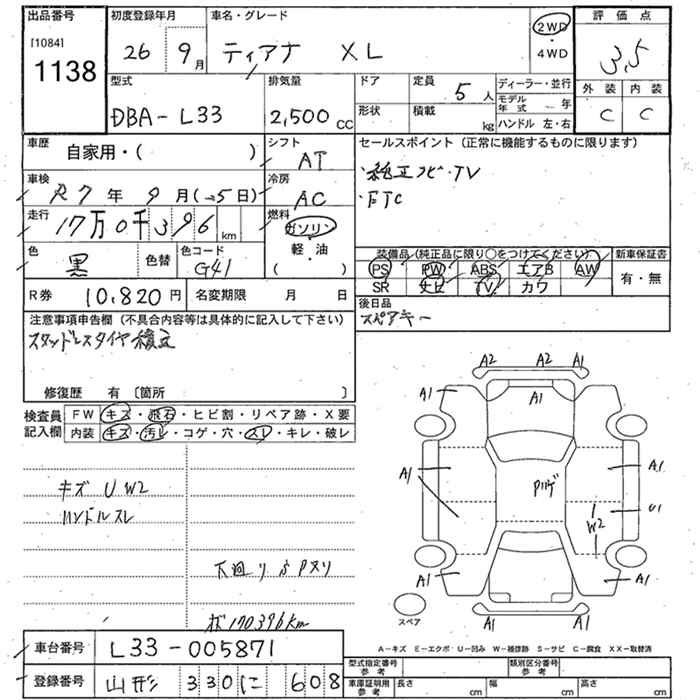 出品番号
[1084]
1138
初度登録年月
26 9月
車名・グレード
ティアナ XL
2WD
・
4WD
評価点
3.5
外装 内装
C C
型式
DBA-L33
排気量
2,500 cc
ドア
形状
定員
5人
積載
kg
ディーラー・並行
モデル年式 年
ハンドル 左・右
車歴
自家用・( )
シフト
AT
車検
R7年 9月(→5日)
冷房
AC
走行
17万0千396 km
燃料
ガソリン
・
軽油
( )
色
黒
色替
色コード
G41
セールスポイント(正常に機能するものに限ります)
・純正ナビ・TV
・ETC
装備品(純正品に限り○をつけてください)
PS PW ABS エアB AW
SR ナビ TV カワ
新車保証書
有・無
R券 10,820円
名変期限 月 日
後日品
スペアキー
注意事項申告欄(不具合内容等は具体的に記入して下さい)
スタッドレスタイヤ積込
修復歴 有〔箇所 〕
検査員記入欄
FW キズ・飛石・ヒビ割・リペア跡・X要
内装 キズ・汚レ・コゲ・穴・スレ・キレ・破レ
キズ U W2
ハンドルスレ
下廻りサビ
メ170396km
A2 A2 A1
A1 A1 A1
A1 A1
U1
W2
A1 A1
A1 A1
スペア
A-キズ E-エクボ U-凹み W-補修跡 S-サビ C-腐食 XX-取替済
車台番号 L33-005871
登録番号 山形 330 に 608
型式指定番号 参考
類別区分番号 参考
車庫証明用 参考
長さ cm 幅 cm 高さ cm